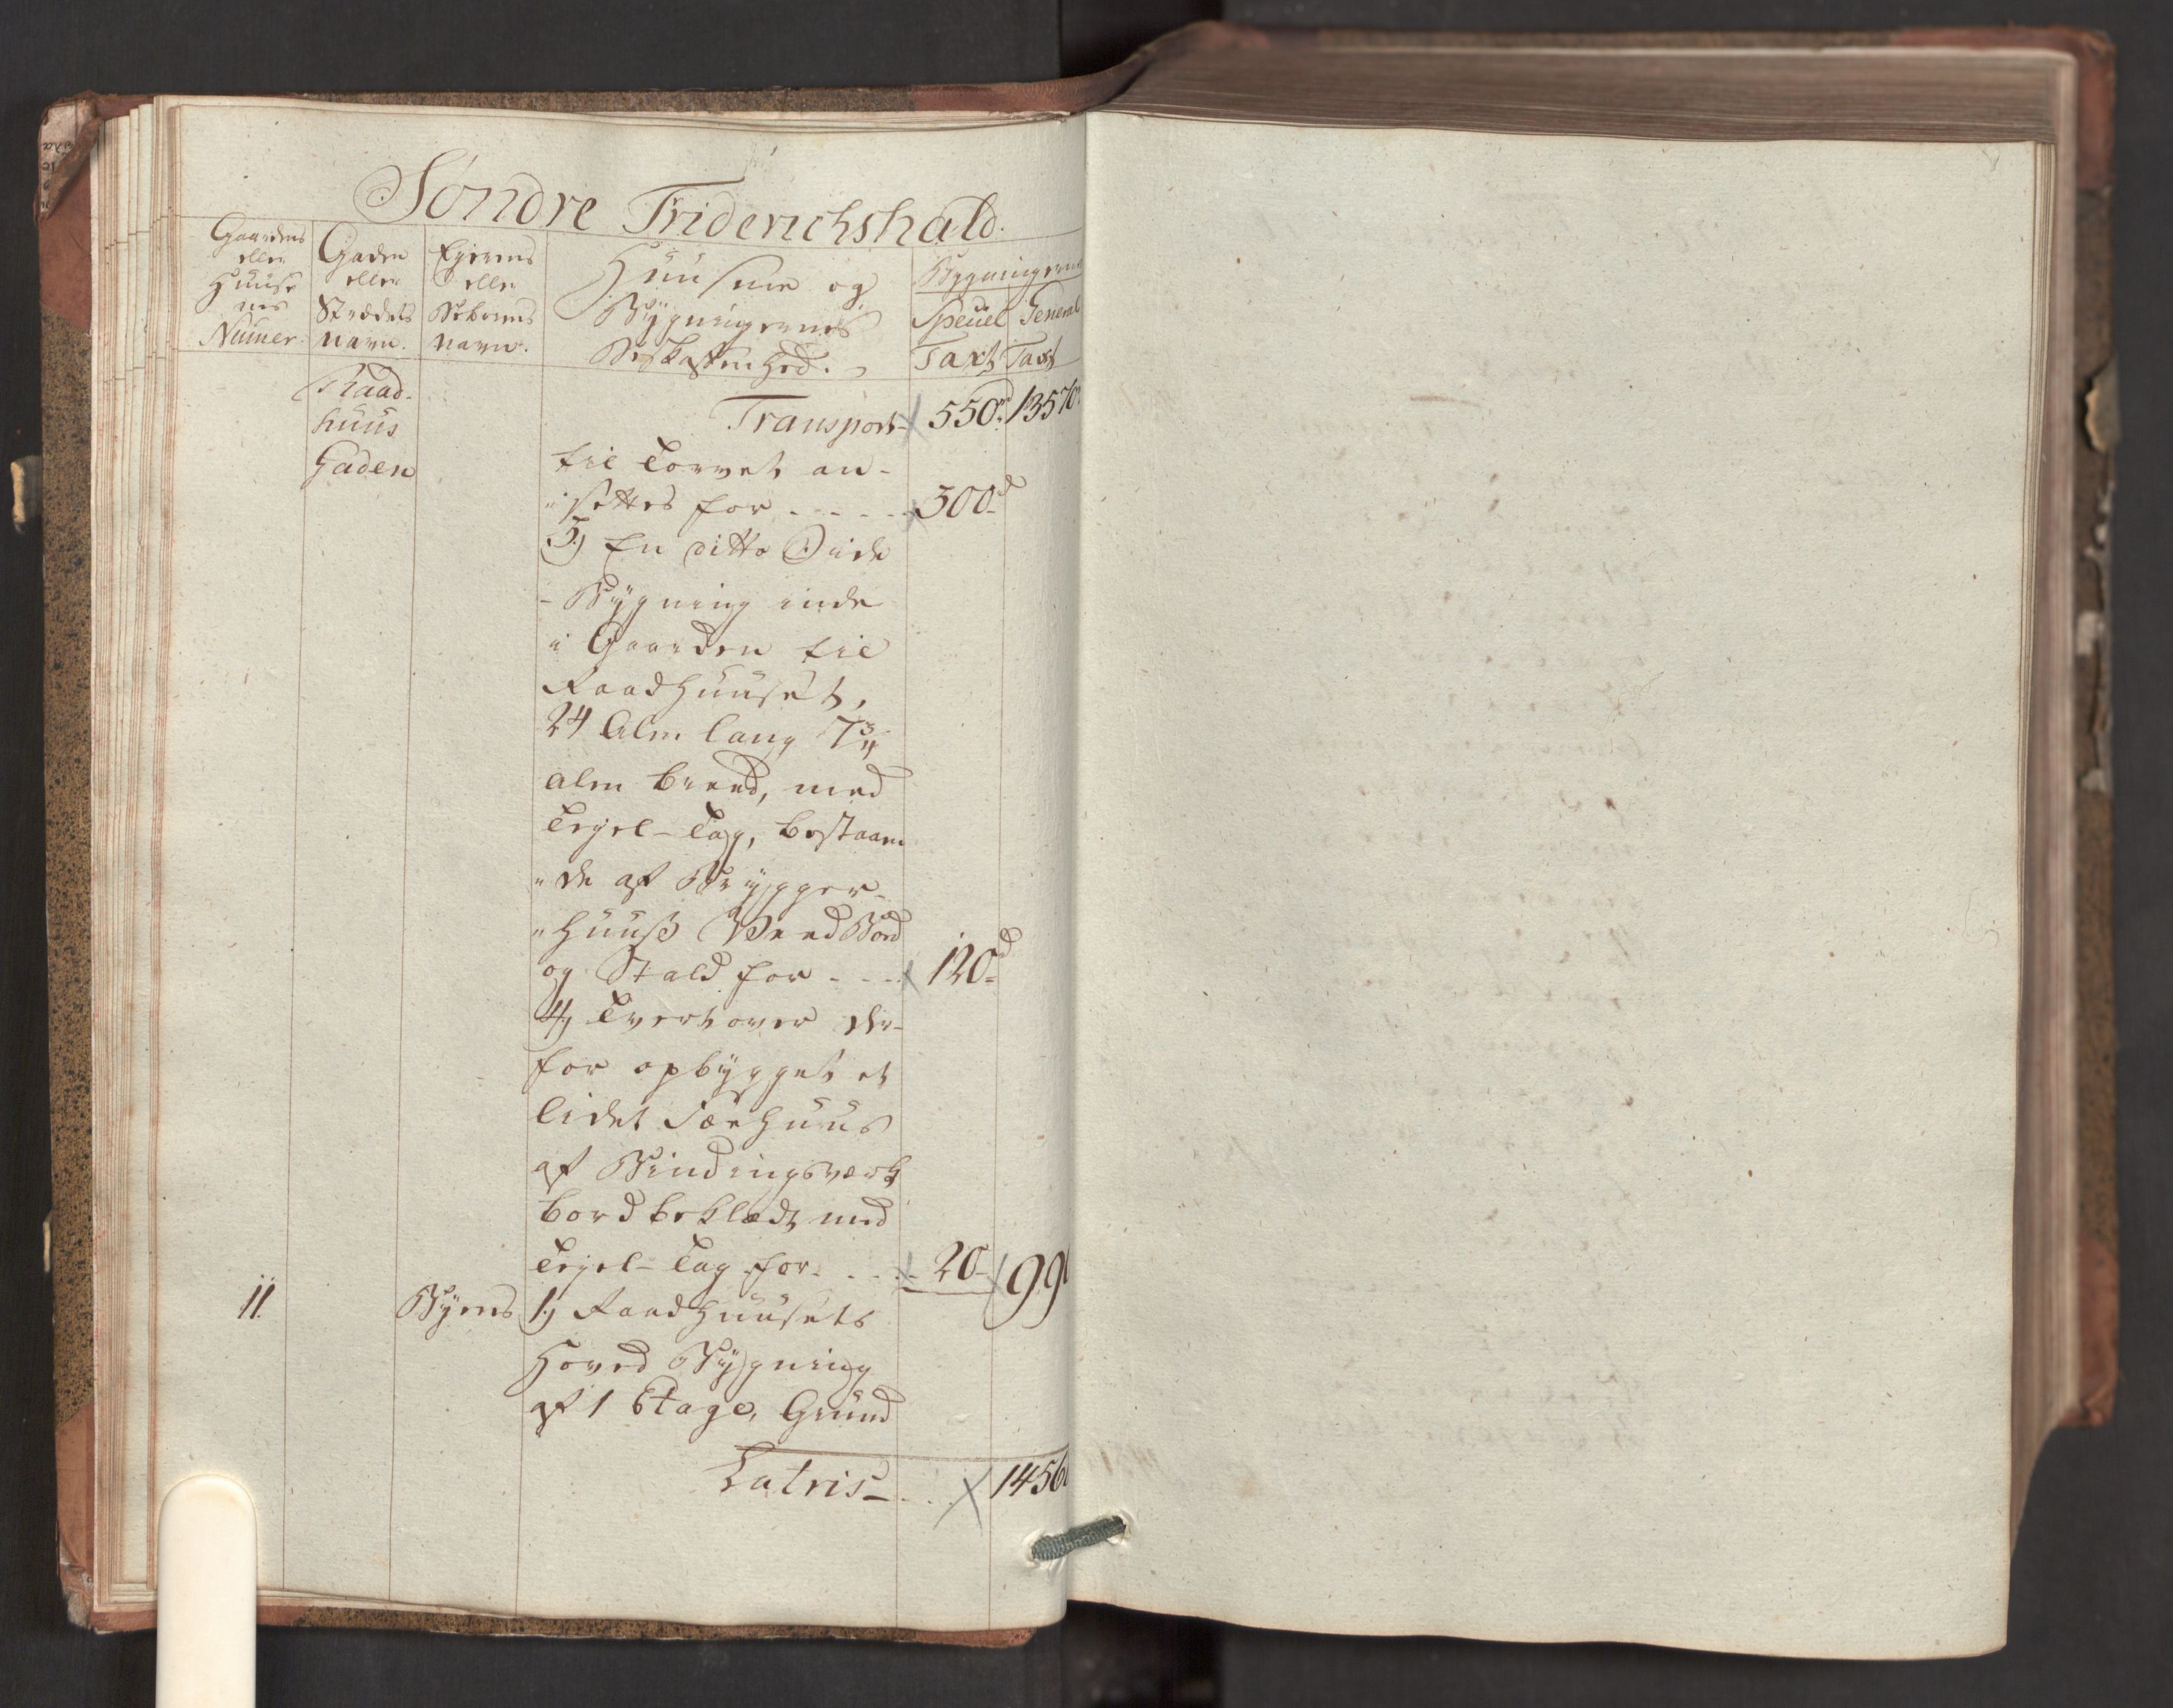 Söndre Friderichshald.
Gaardens eller Huuse nes Numer.
Gaden eller Stædets navn.
Eyerens eller Beboerens navn.
Huusene og Bygningernes Beskaffenhed.
Bygningernes
Speciel Taxt
General Taxt
Raad-
huus
Gaden
Transport 550rd 13570
til Torvet an-
settes for - - - - 300d
3) En ditto Side
-Bygning inde
i Gaarden til
Raadhuuset,
24 Alen lang 7 3/4
alen breed, med
Tegel-Tag, bestaaen
de af Brygger-
huuß Veed Bod
og Stald for - - - 120d
4) Tvert over der-
for opbygget et
lidet Fæehuus
af Bindingsværk
bord beklædt med
Tegel-Tag for - - - 20 - 99
11. Byens 1) Raadhuusets
Hoved Bygning
af 1 Etage, Grund
Latris - - - 1456